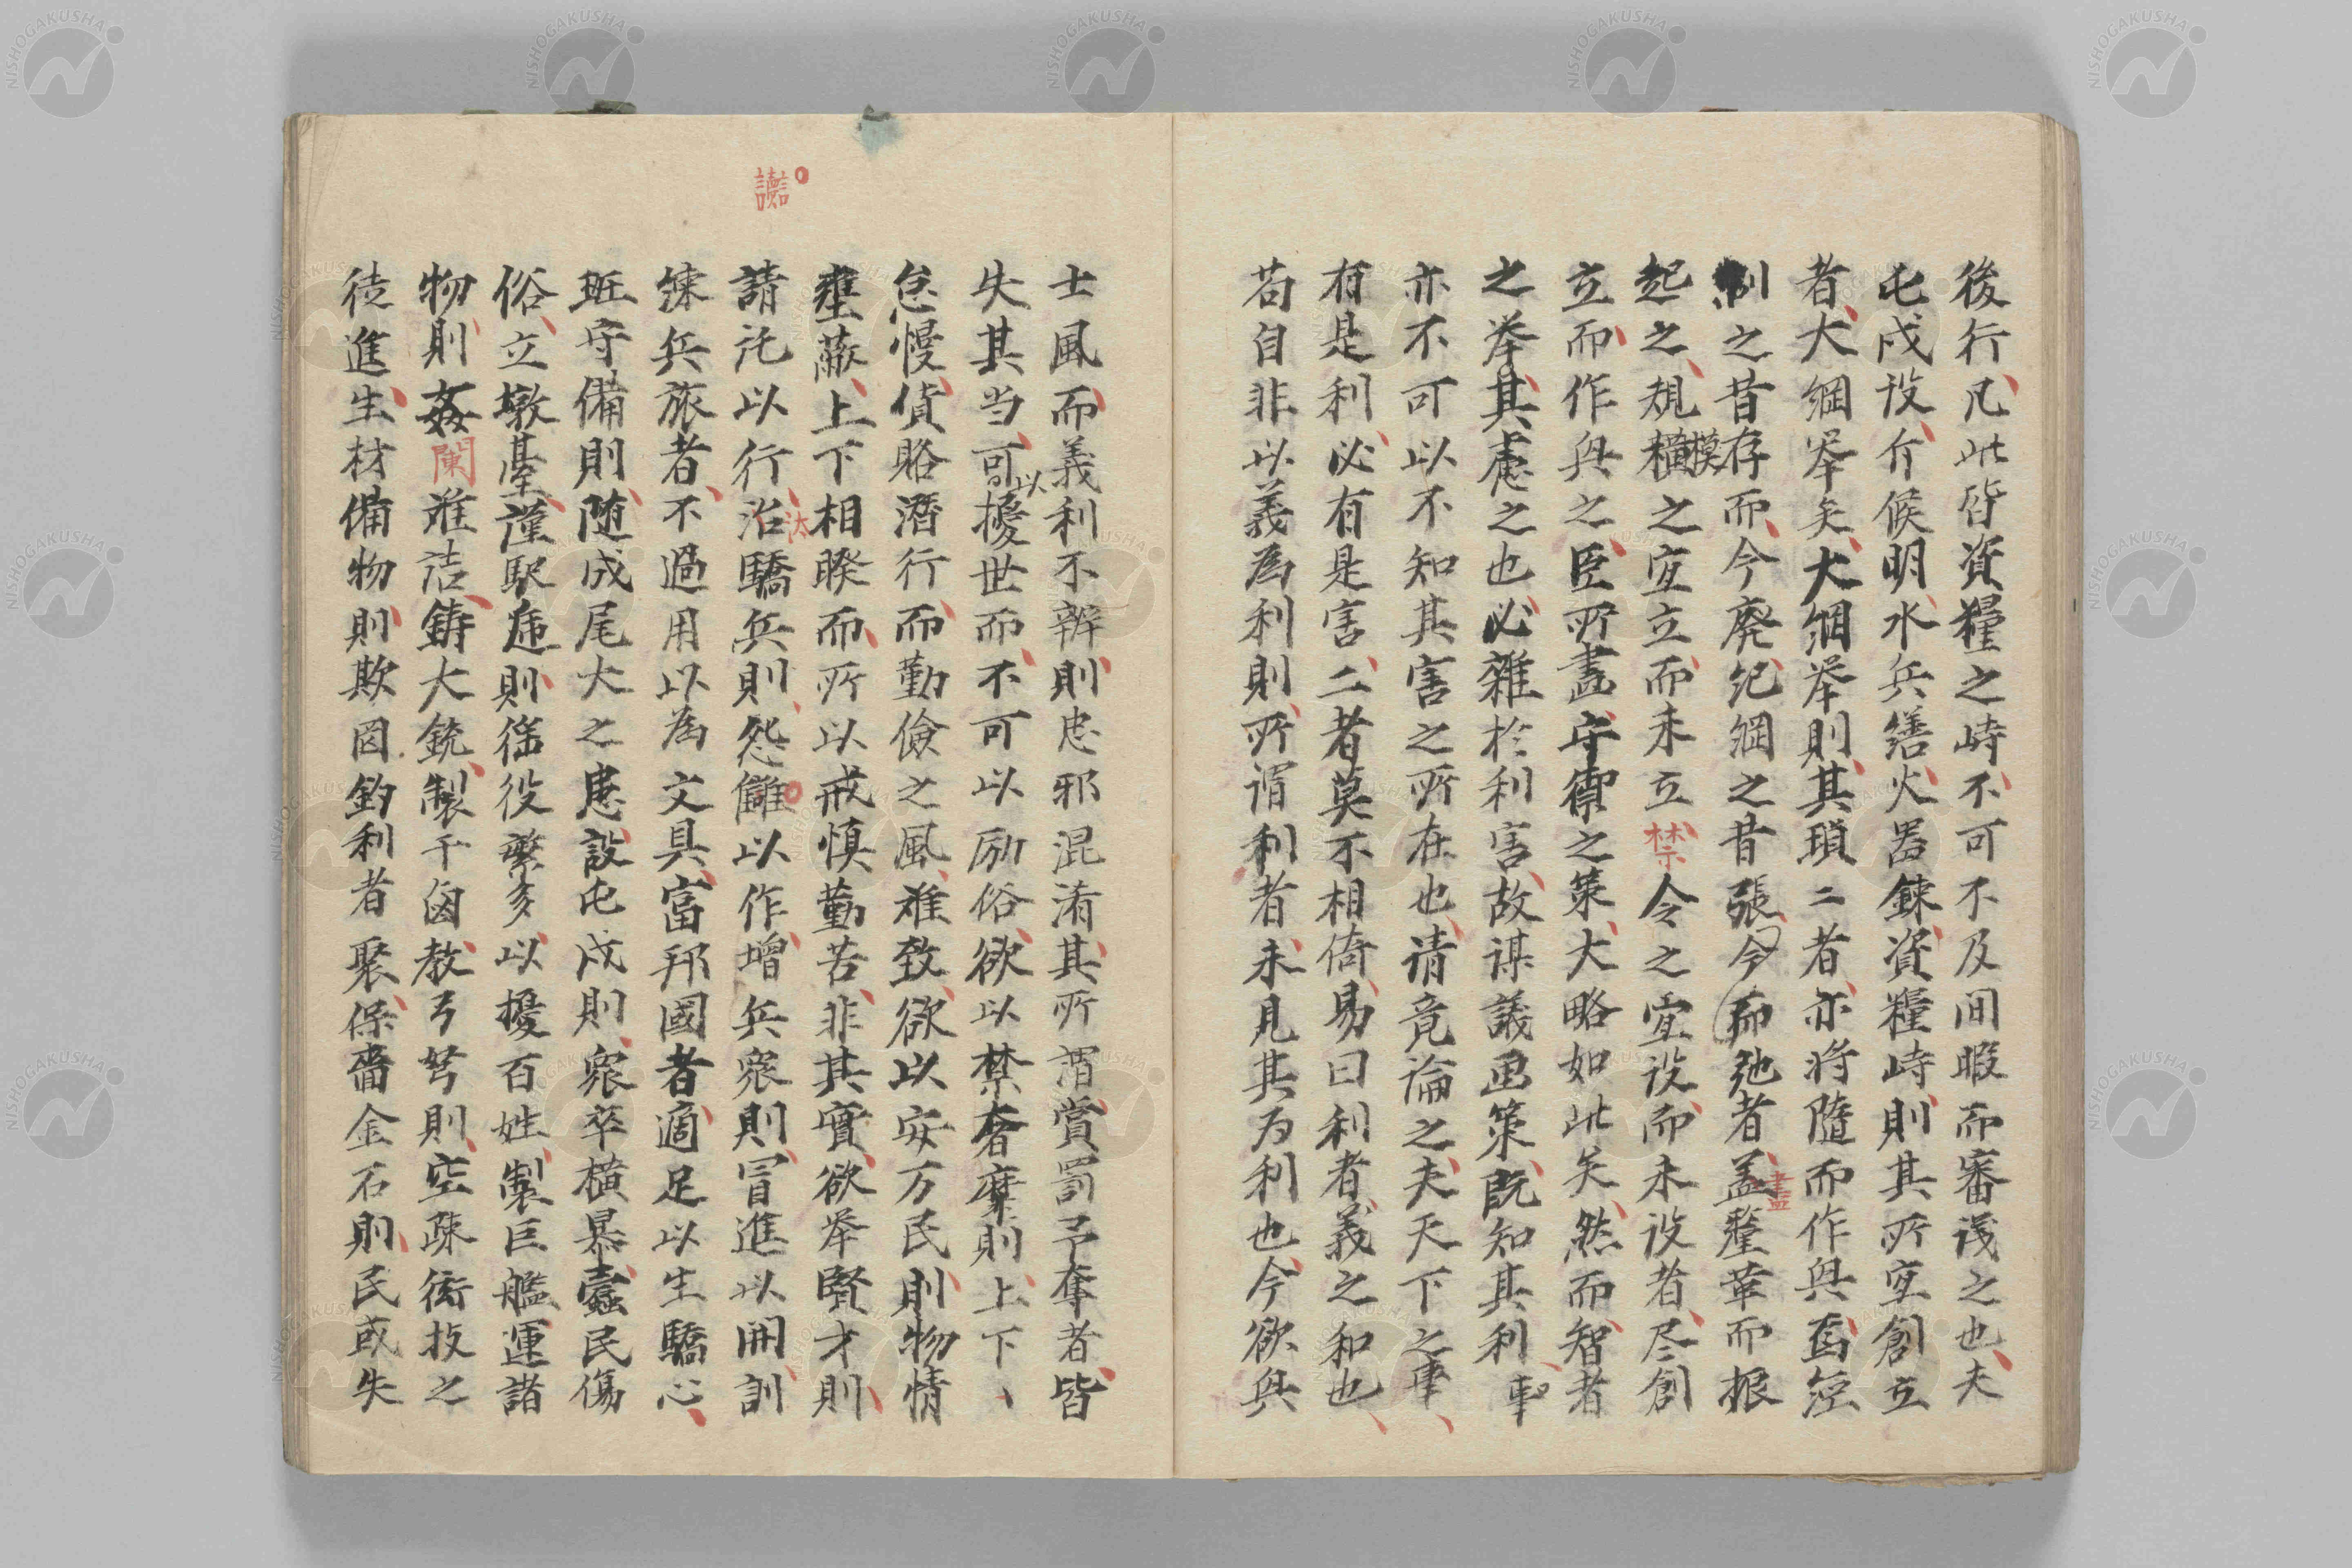 後行凡此皆資糧之峙不可不及間暇而審議之也夫
屯戍設斥候明水兵繕火器錬資糧峙則其所宜創立
者大綱挙矣大綱挙則其瑣二者亦将隨而作興焉經
制之昔存而今廃紀綱之昔張今而弛者盖釐革而振
盡
起之規模之宜立而未立禁令之宜設而未設者尽創
模
立而作興之臣所畫守禦之策大略如此矣然而智者
之挙其慮之也必雜於利害故謀議画策既知其利
亦不可以不知其害之所在也請竟論之夫天下之事
有是利必有是害二者莫不相倚易曰利者義之和也
苟自非以義為利則所謂利者未見其为利也今欲興
士風而義利不辨則忠邪混淆其所謂賞罰予奪者皆
失其当可以擾世而不可以励俗欲以禁奢糜則上下、
怠慢貨賂潛行而勤儉之風難致欲以安万民則物情
壅蔽上下相睽而所以戒慎勤苦非其實欲挙賢才則
請託以行治驕兵則怨讎以作增兵衆則冒進以開訓
汰
讟
錬兵旅者不過用以為文具富邦國者適足以生驕心
班守備則随成尾大之患設屯戍則衆卒横暴蠹民傷
俗立墩䑓謹駅逓則徭役繁多以擾百姓製巨艦運諸
物則姦闌難詰鋳大銃製干卤教弓弩則空疎衒技之
徒進生材備物則欺罔釣利者聚保嗇金石則民或失
NISHOGAKUSHA